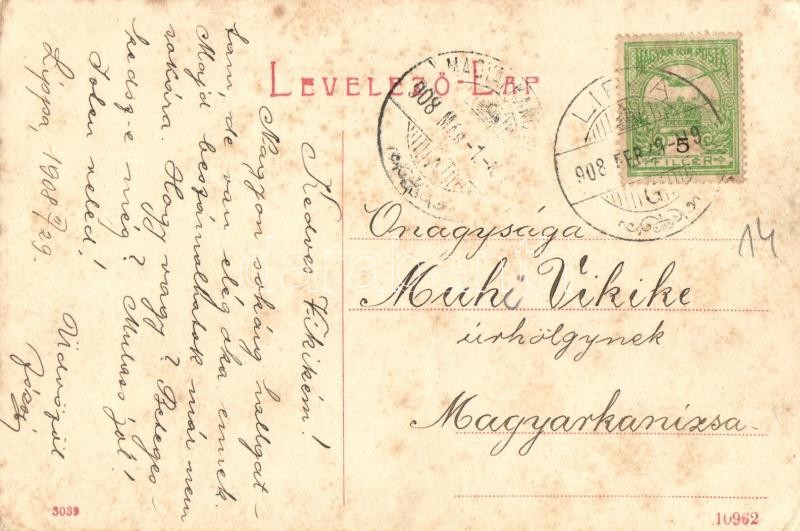 LEVELEZŐ-LAP
MAGYAR KIR. POSTA
5
FILLÉR
LIPPA
908 FEB. 29
908 MÁR. -1.
Kedves Vikikém!
Nagyon sokáig hallgat-
tam, de van elég oka ennek.
Majd beszámolhatok már nem
sokára. Hogy vagy? Beteges-
kedsz-e még? Mulass jól!
Isten veled!
Lippa, 1908 II/29.
Üdvözöl
Önagysága
Muhi Vikike
úrhölgynek
Magyarkanizsa
14
3039
10962